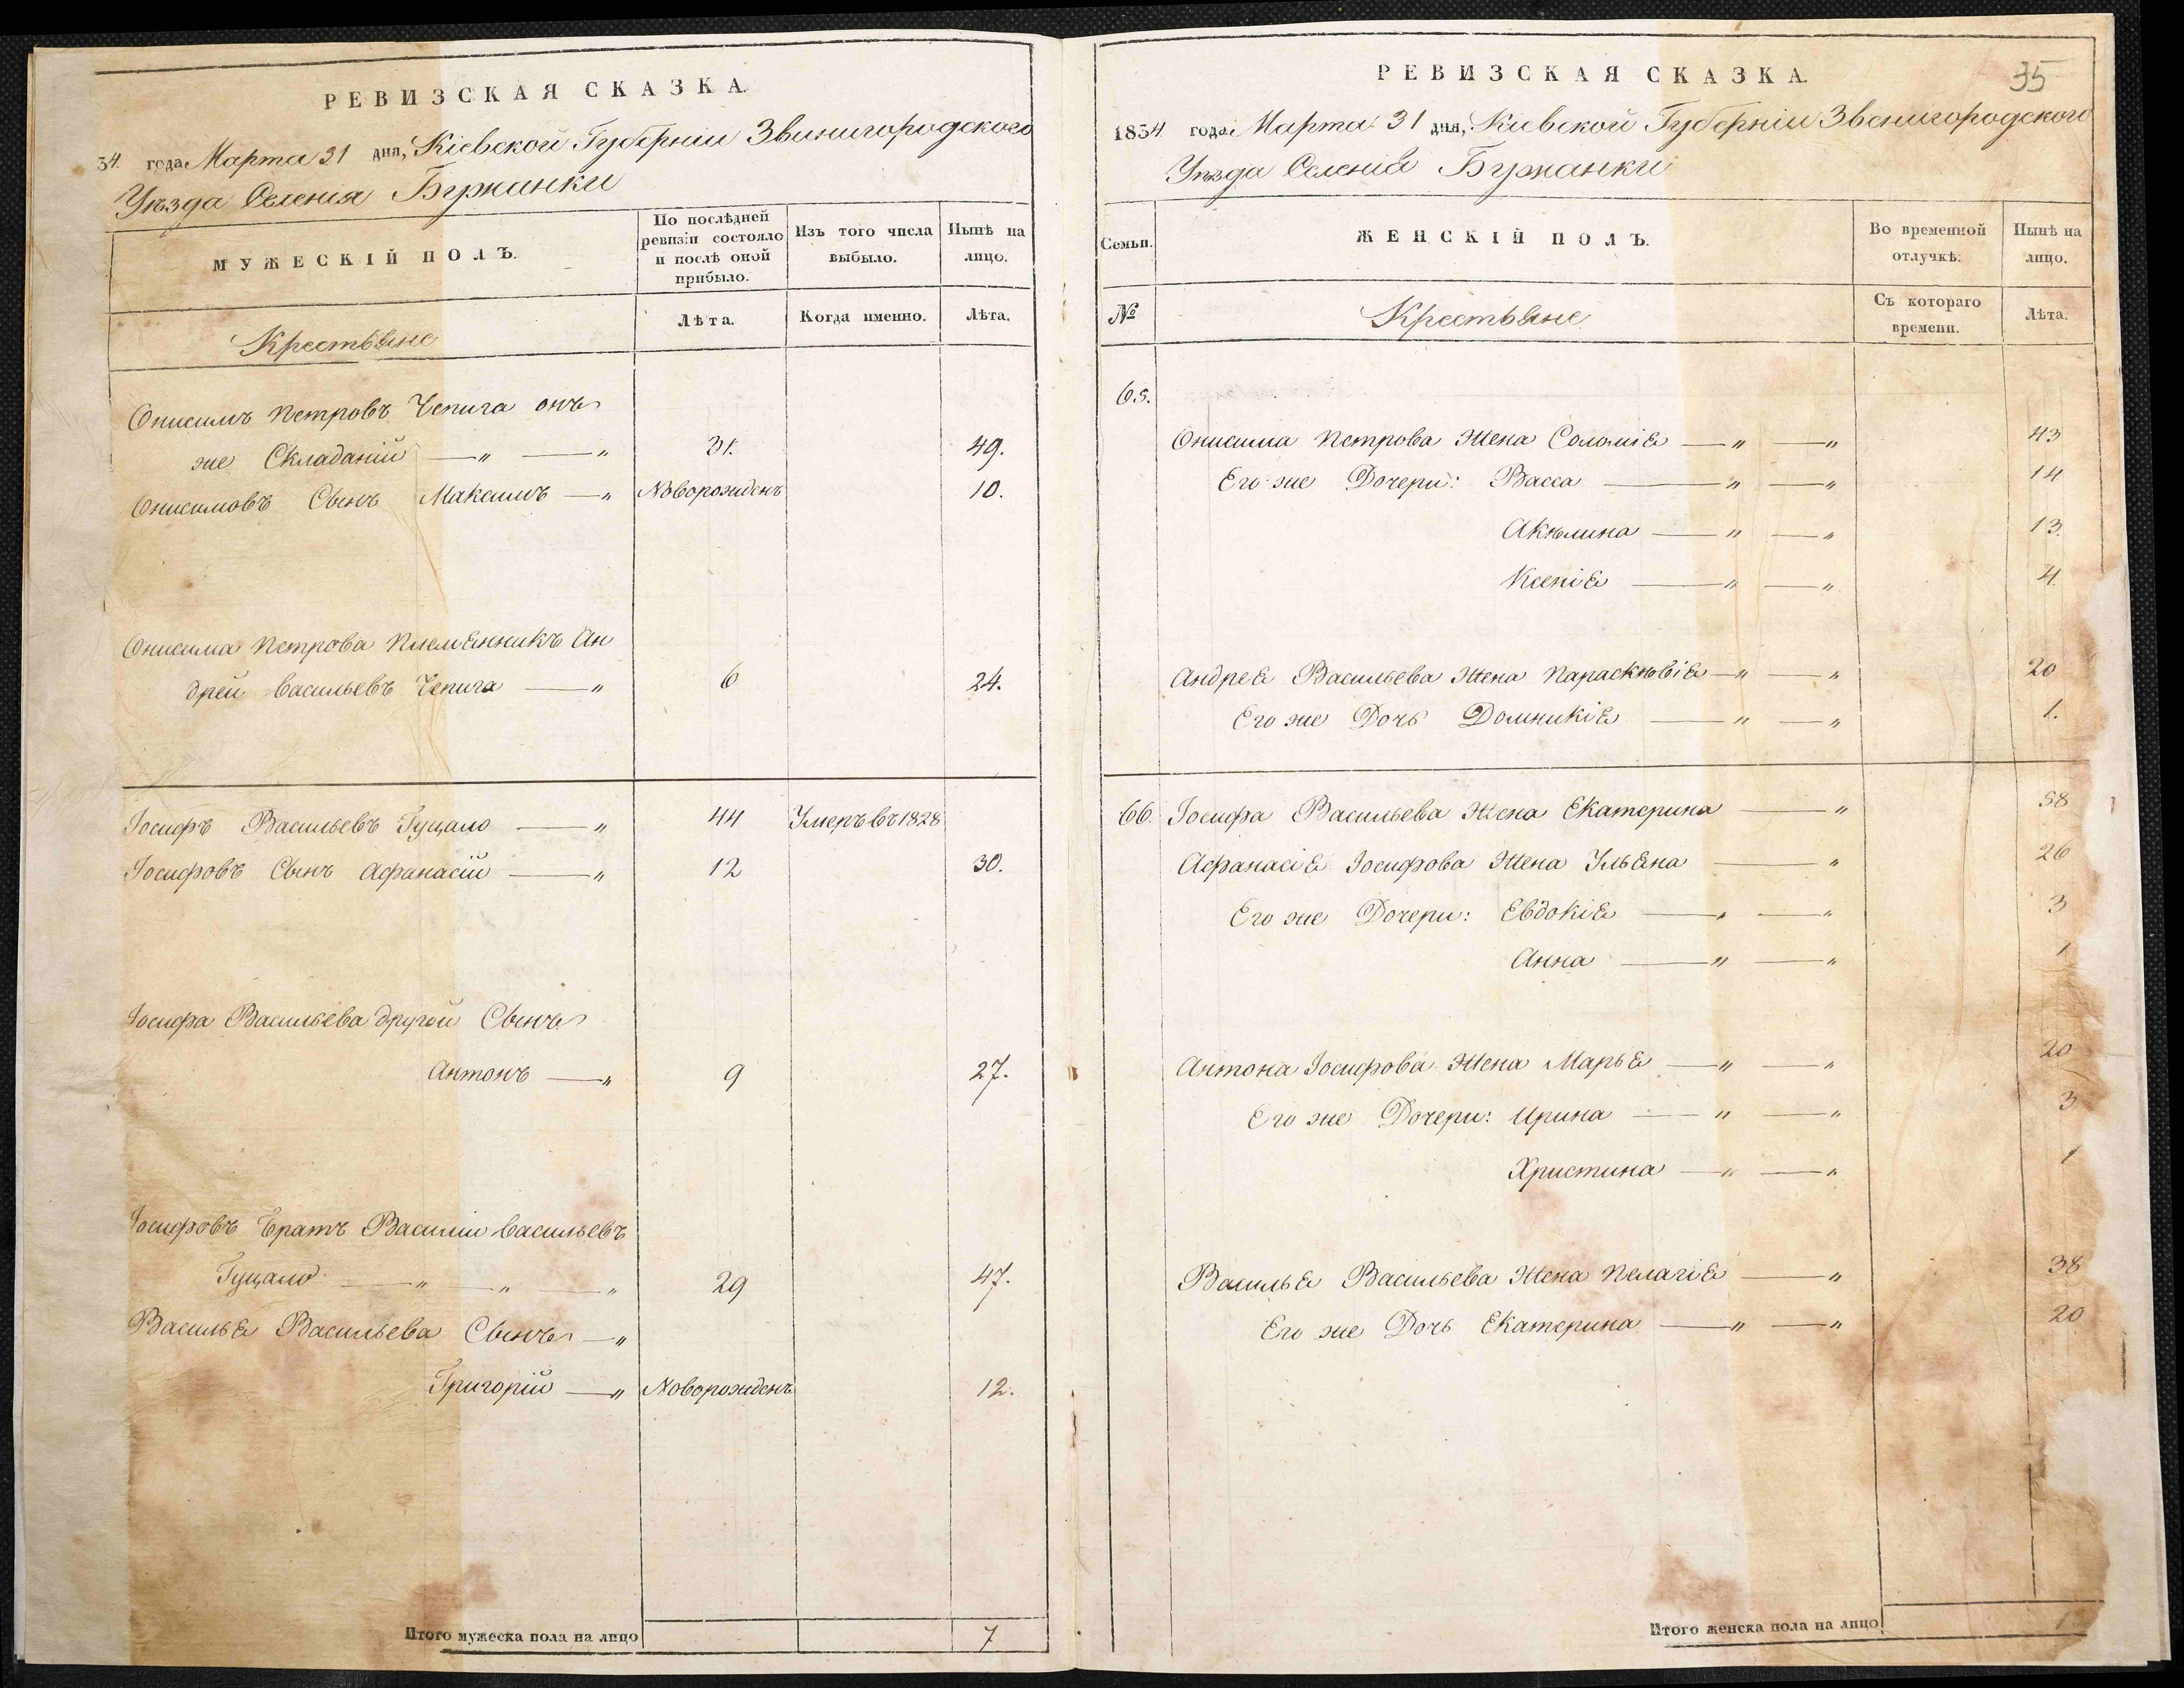 РЕВИЗСКАЯ СКАЗКА.
34 года Марта 31 дня, Кіевской Губерніи Звенигородского
Уѣзда Селенія Бужанки
МУЖЕСКІЙ ПОЛЪ.
По послѣдней ревизіи состояло и послѣ оной прибыло.
Изъ того числа выбыло.
Нынѣ на лицо.
Крестьяне
Лѣта.
Когда именно.
Лѣта.
Онисимъ Петровъ Чепига онъ
же Складаній — „ — „ 31. 49.
Онисимовъ Сынъ Максимъ — „ Новорожденъ 10.
Онисима Петрова Племянникъ Ан
дрей Васильевъ Чепига — „ 6 24.
Іосифъ Васильевъ Гуцало — „ 44 Умеръ въ 1828
Іосифовъ Сынъ Афанасій — „ 12 30.
Іосифа Васильева другой Сынъ
Антонъ — „ 9 27.
Іосифовъ Братъ Василій Васильевъ
Гуцало — „ — „ — „ 29 47.
Василья Васильева Сынъ — „
Григорій — „ Новорожденъ 12.
Итого мужеска пола на лицо 7
РЕВИЗСКАЯ СКАЗКА.
35
1834 года Марта 31 дня, Кіевской Губерніи Звенигородского
Уѣзда Селенія Бужанки
Семьи.
ЖЕНСКІЙ ПОЛЪ.
Во временной отлучкѣ.
Нынѣ на лицо.
№
Крестьяне
Съ котораго времени.
Лѣта.
65.
Онисима Петрова Жена Соломія — „ — „ 43
Его же Дочери: Васса — „ — „ 14
Акѣлина — „ — „ 13.
Ксенія — „ — „ 4.
Андрея Васильева Жена Параскѣвія — „ — „ 20
Его же Дочь Домникія — „ — „ 1.
66. Іосифа Васильева Жена Екатерина — „ 58
Афанасія Іосифова Жена Ульяна — „ 26
Его же Дочери: Евдокія — „ — „ 3
Анна — „ — „ 1
Антона Іосифова Жена Марья — „ — „ 20
Его же Дочери: Ирина — „ — „ 3
Христина — „ — „ 1
Василья Васильева Жена Пелагія — „ 38
Его же Дочь Екатерина — „ — „ 20
Итого женска пола на лицо